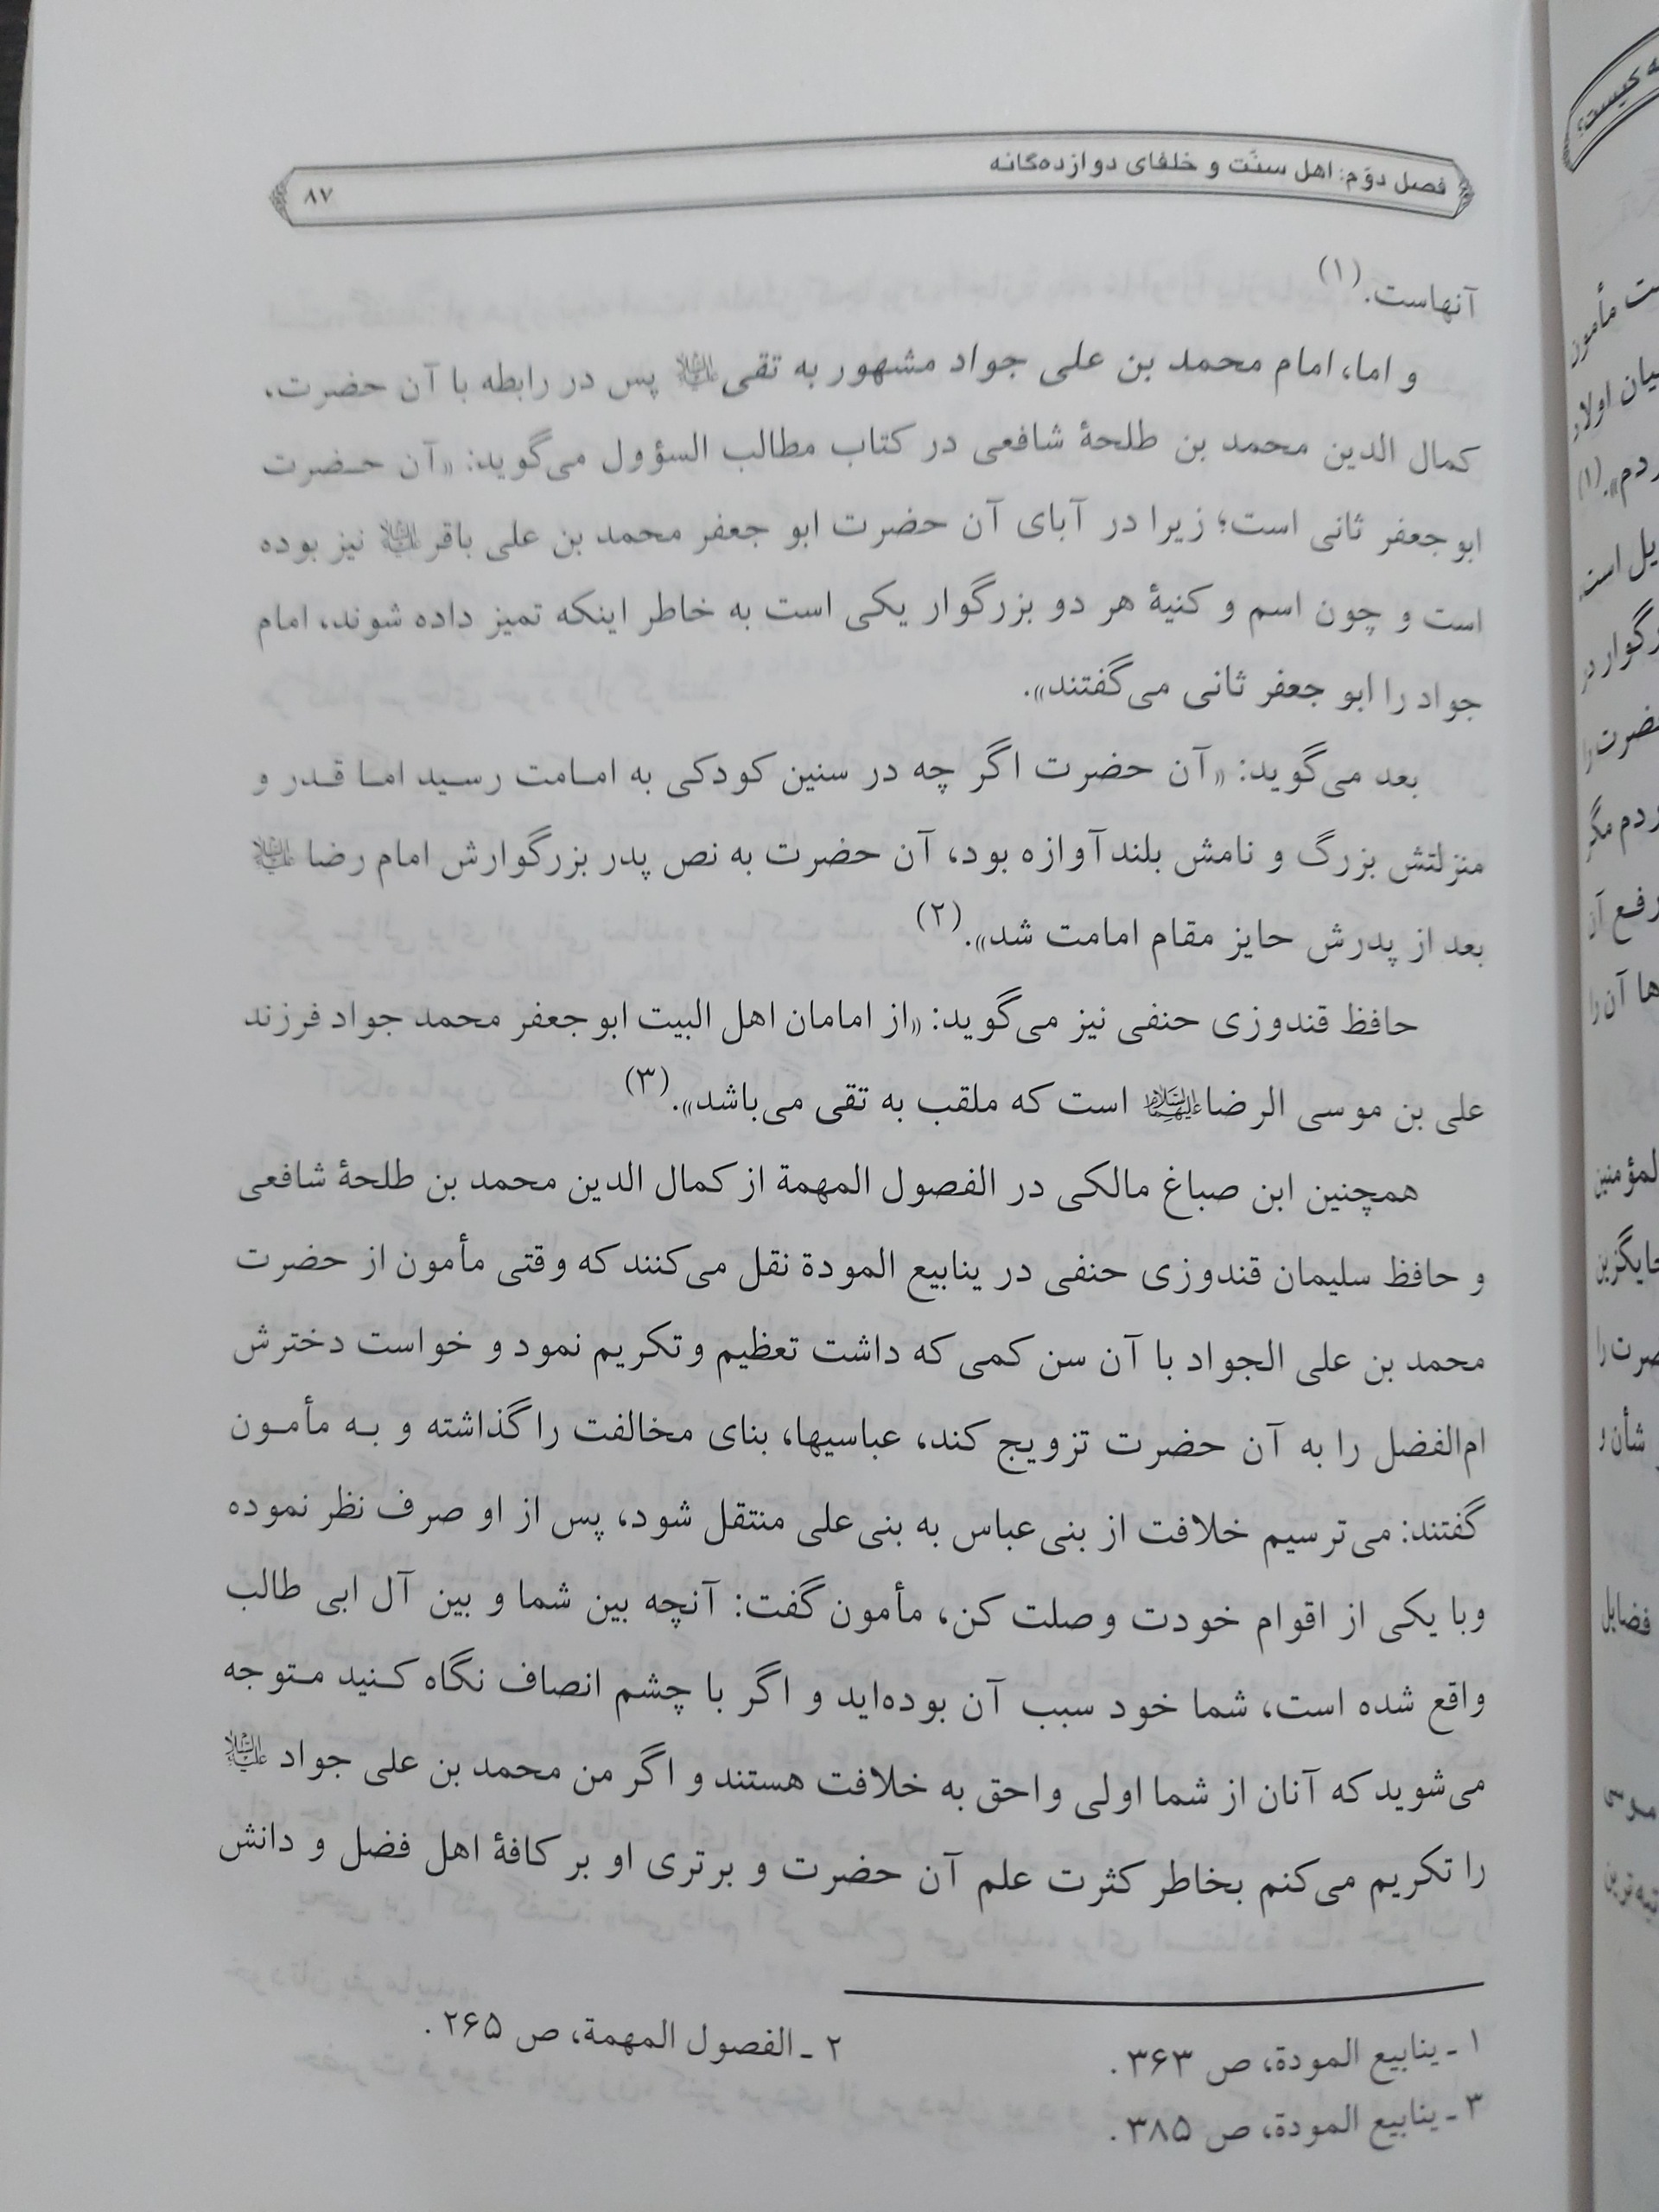 فصل دوّم: اهل سنّت و خلفای دوازده‌گانه
۸۷
آنهاست.(۱)
و اما، امام محمد بن علی جواد مشهور به تقی علیه السلام پس در رابطه با آن حضرت،
کمال الدین محمد بن طلحهٔ شافعی در کتاب مطالب السؤول می‌گوید: «آن حضرت
ابو جعفر ثانی است؛ زیرا در آبای آن حضرت ابو جعفر محمد بن علی باقر علیه السلام نیز بوده
است و چون اسم و کنیهٔ هر دو بزرگوار یکی است به خاطر اینکه تمیز داده شوند، امام
جواد را ابو جعفر ثانی می‌گفتند».
بعد می‌گوید: «آن حضرت اگر چه در سنین کودکی به امامت رسید اما قدر و
منزلتش بزرگ و نامش بلندآوازه بود، آن حضرت به نص پدر بزرگوارش امام رضا علیه السلام
بعد از پدرش حایز مقام امامت شد».(۲)
حافظ قندوزی حنفی نیز می‌گوید: «از امامان اهل البیت ابو جعفر محمد جواد فرزند
علی بن موسی الرضا علیهما السلام است که ملقب به تقی می‌باشد».(۳)
همچنین ابن صباغ مالکی در الفصول المهمة از کمال الدین محمد بن طلحهٔ شافعی
و حافظ سلیمان قندوزی حنفی در ینابیع المودة نقل می‌کنند که وقتی مأمون از حضرت
محمد بن علی الجواد با آن سن کمی که داشت تعظیم و تکریم نمود و خواست دخترش
ام‌الفضل را به آن حضرت تزویج کند، عباسیها، بنای مخالفت را گذاشته و به مأمون
گفتند: می‌ترسیم خلافت از بنی‌عباس به بنی‌علی منتقل شود، پس از او صرف نظر نموده
وبا یکی از اقوام خودت وصلت کن، مأمون گفت: آنچه بین شما و بین آل ابی طالب
واقع شده است، شما خود سبب آن بوده‌اید و اگر با چشم انصاف نگاه کنید متوجه
می‌شوید که آنان از شما اولی و احق به خلافت هستند و اگر من محمد بن علی جواد علیه السلام
را تکریم می‌کنم بخاطر کثرت علم آن حضرت و برتری او بر کافهٔ اهل فضل و دانش
۱ ـ ینابیع المودة، ص ۳۶۳.
۲ ـ الفصول المهمة، ص ۲۶۵.
۳ ـ ینابیع المودة، ص ۳۸۵.